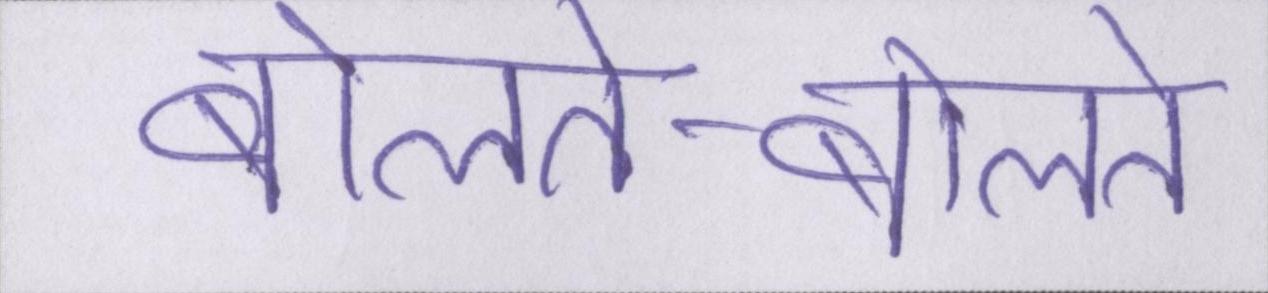 बोलते-बोलते